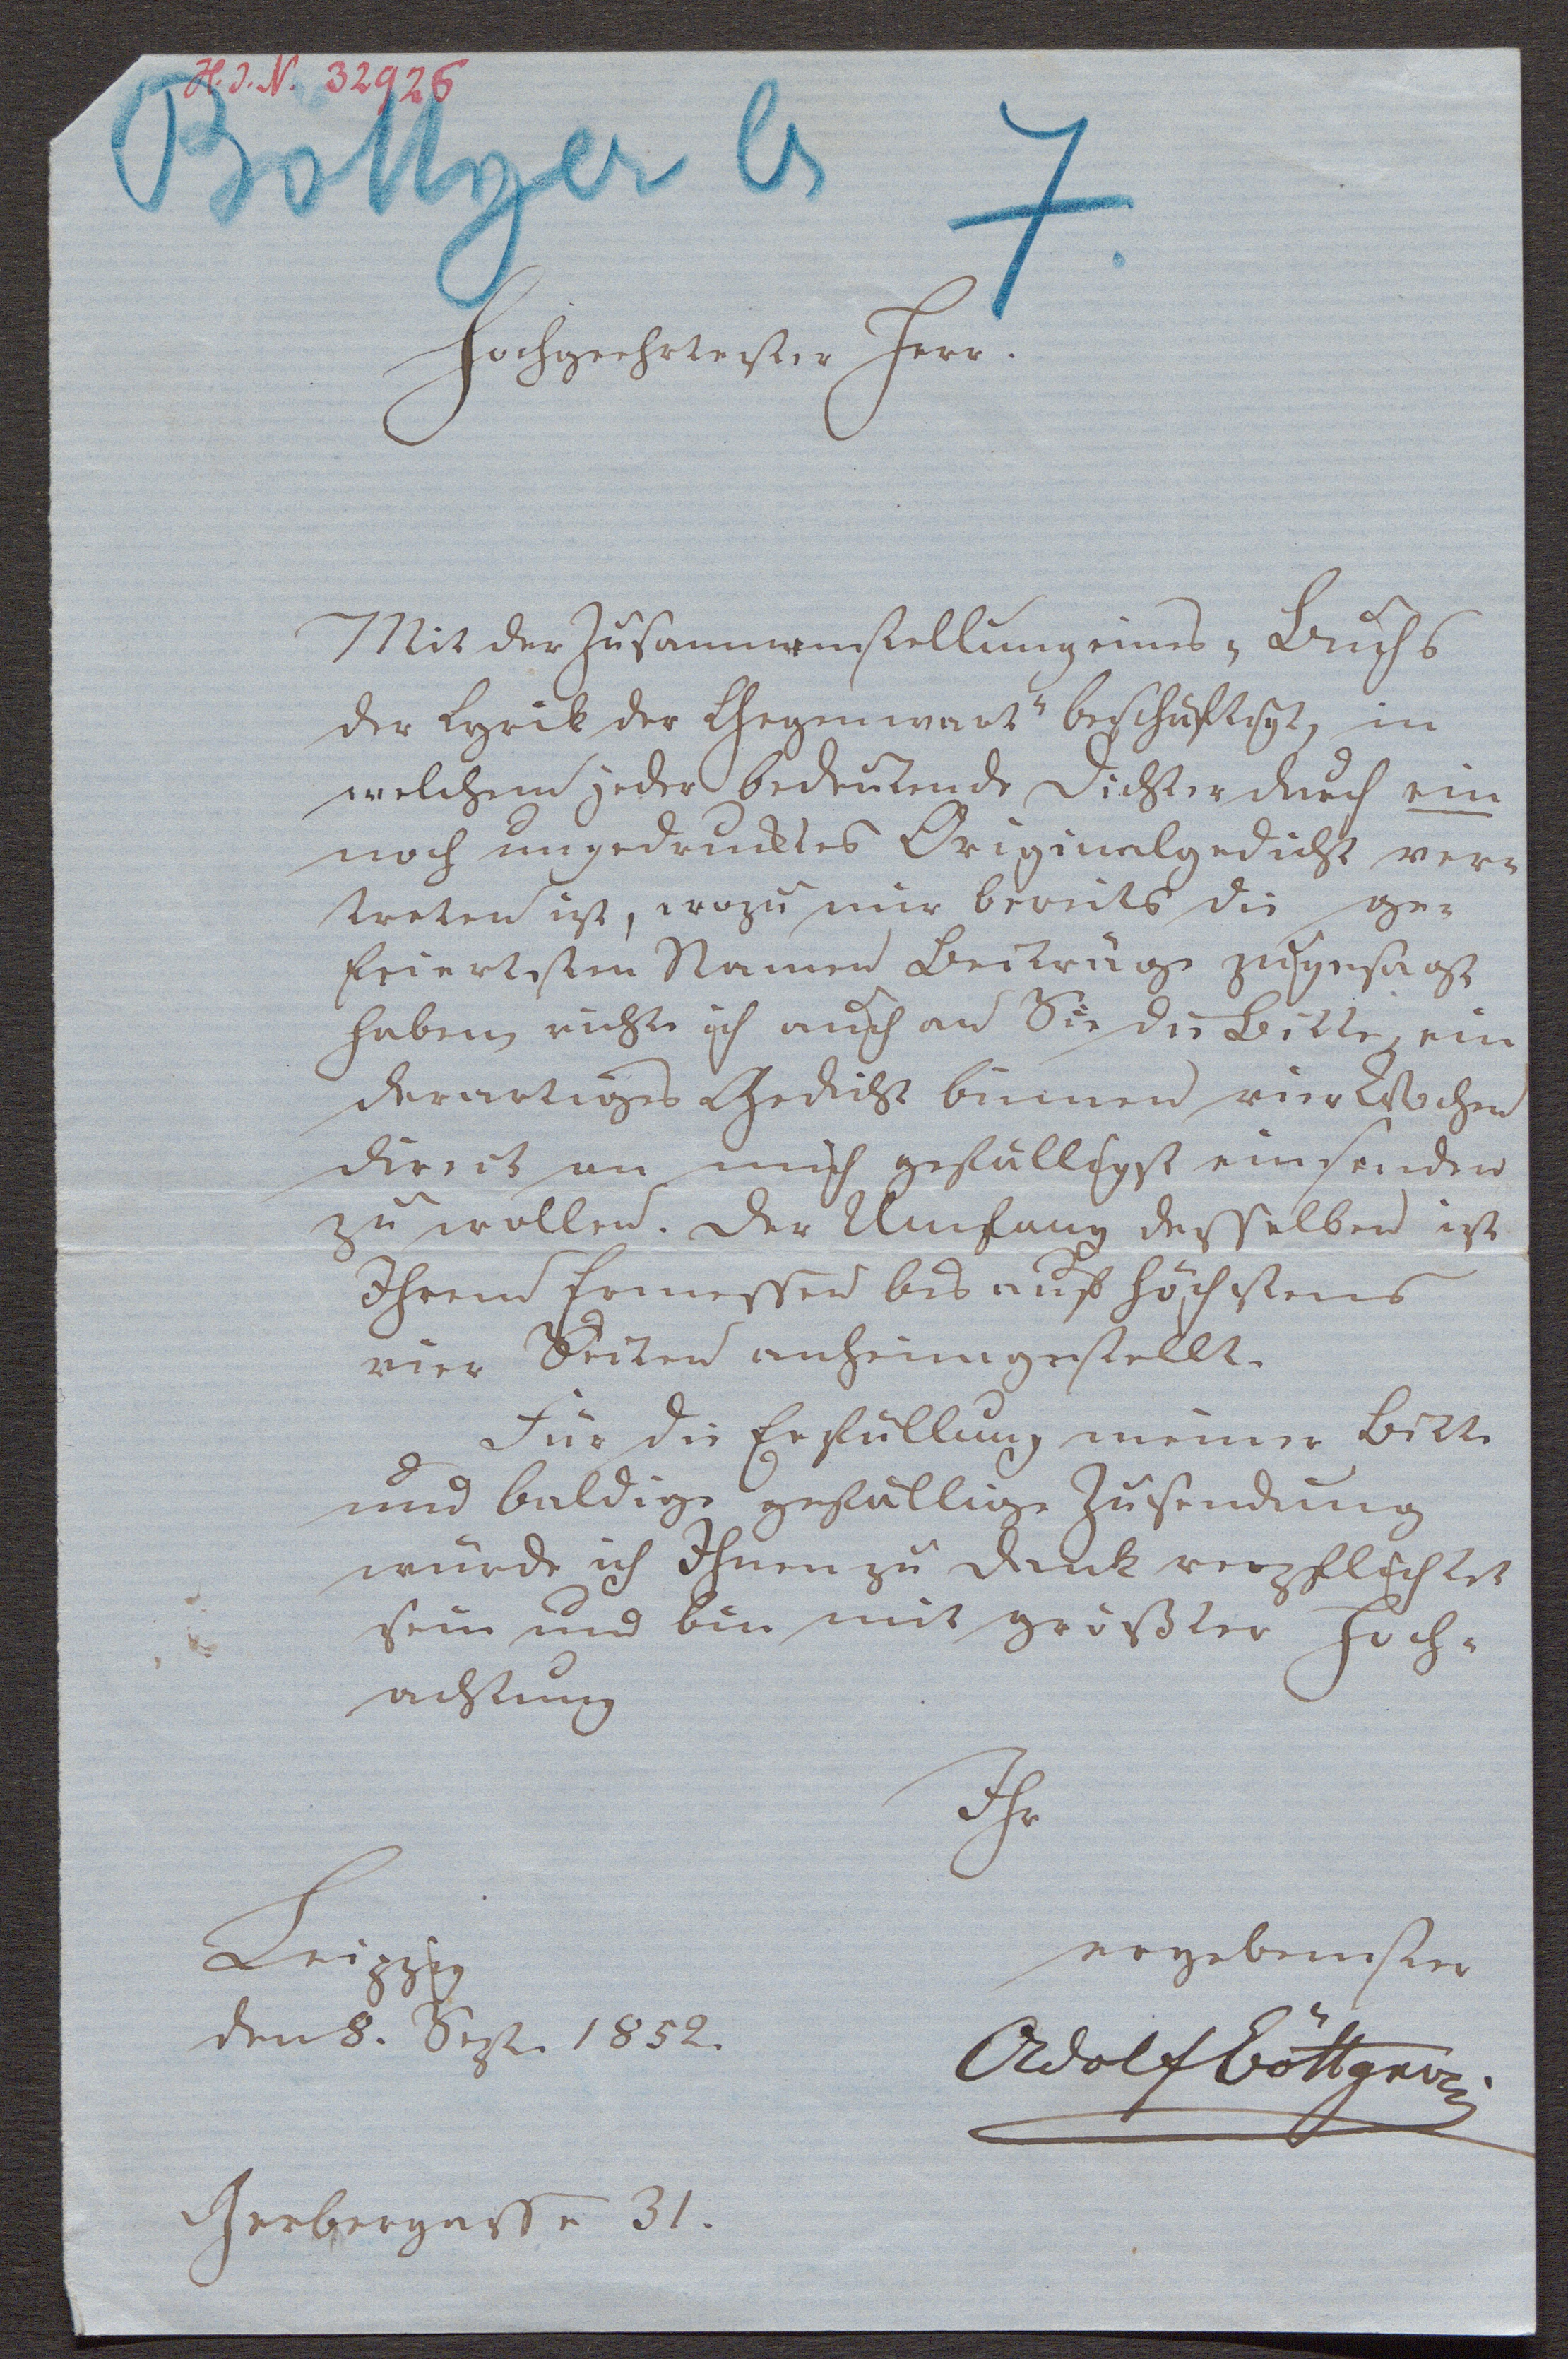 H.I.N. 32926
Böttger
7.
Hochgeehrtester Herr.
Mit der Zusammenstellung eines „Buchs
der Lyrik der Gegenwart“ beschäftigt, in
welchem jeder bedeutende Dichter durch ein
noch ungedrucktes Originalgedicht ver-
treten ist, wozu mir bereits die ge-
feiertsten Namen Beiträge zugesagt
haben, richte ich auch an Sie die Bitte, ein
derartiges Gedicht binnen vier Wochen
direct an mich gefälligst einsenden
zu wollen. Der Umfang desselben ist
Ihrem Ermessen bis auf höchstens
vier Seiten anheimgestellt.
Für die Erfüllung meiner Bitte
und baldige gefällige Zusendung
würde ich Ihnen zu Dank verpflichtet
sein und bin mit größter Hoch-
achtung
Ihr
ergebenster
Adolf Böttger
Leipzig
den 8. Sept. 1852.
Gerbergasse 31.